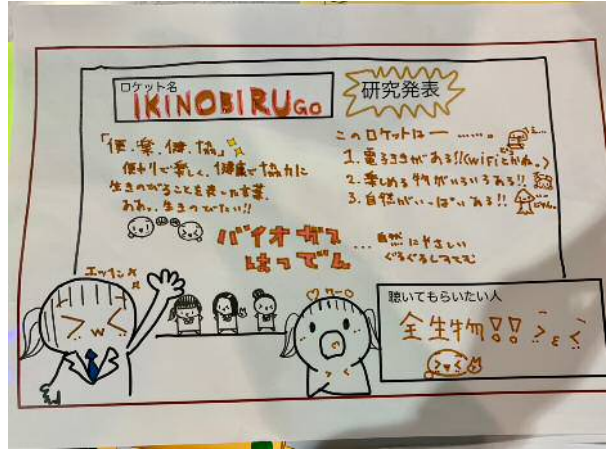 ロケット名
IKINOBIRU GO
研究発表
「便.楽.健.協」
便利で楽しく、健康で協力に
生きのびることを表した言葉。
ああっ、生きのびたい!!
このロケットはー ……。
1. 電ききがある!!(wifiとかね。)
2. 楽しめる物がいろいろある!!
3. 自然がいっぱいある!!
バイオガス
はつでん
... 自然にやさしい
ぐるぐるしすてむ
エッヘン
聴いてもらいたい人
全生物!!